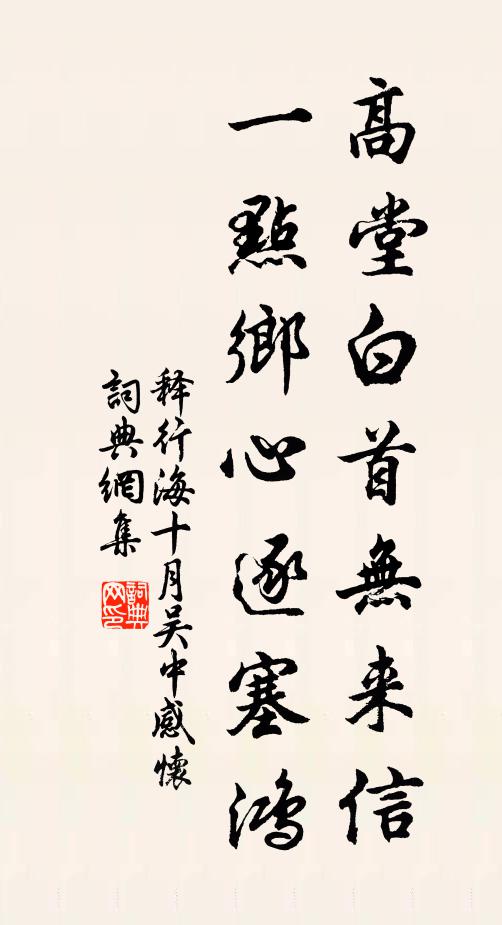 高堂白首無来信
一點鄉心逐塞鴻
释行海十月吴中感懷
詞典網集
詞典网印